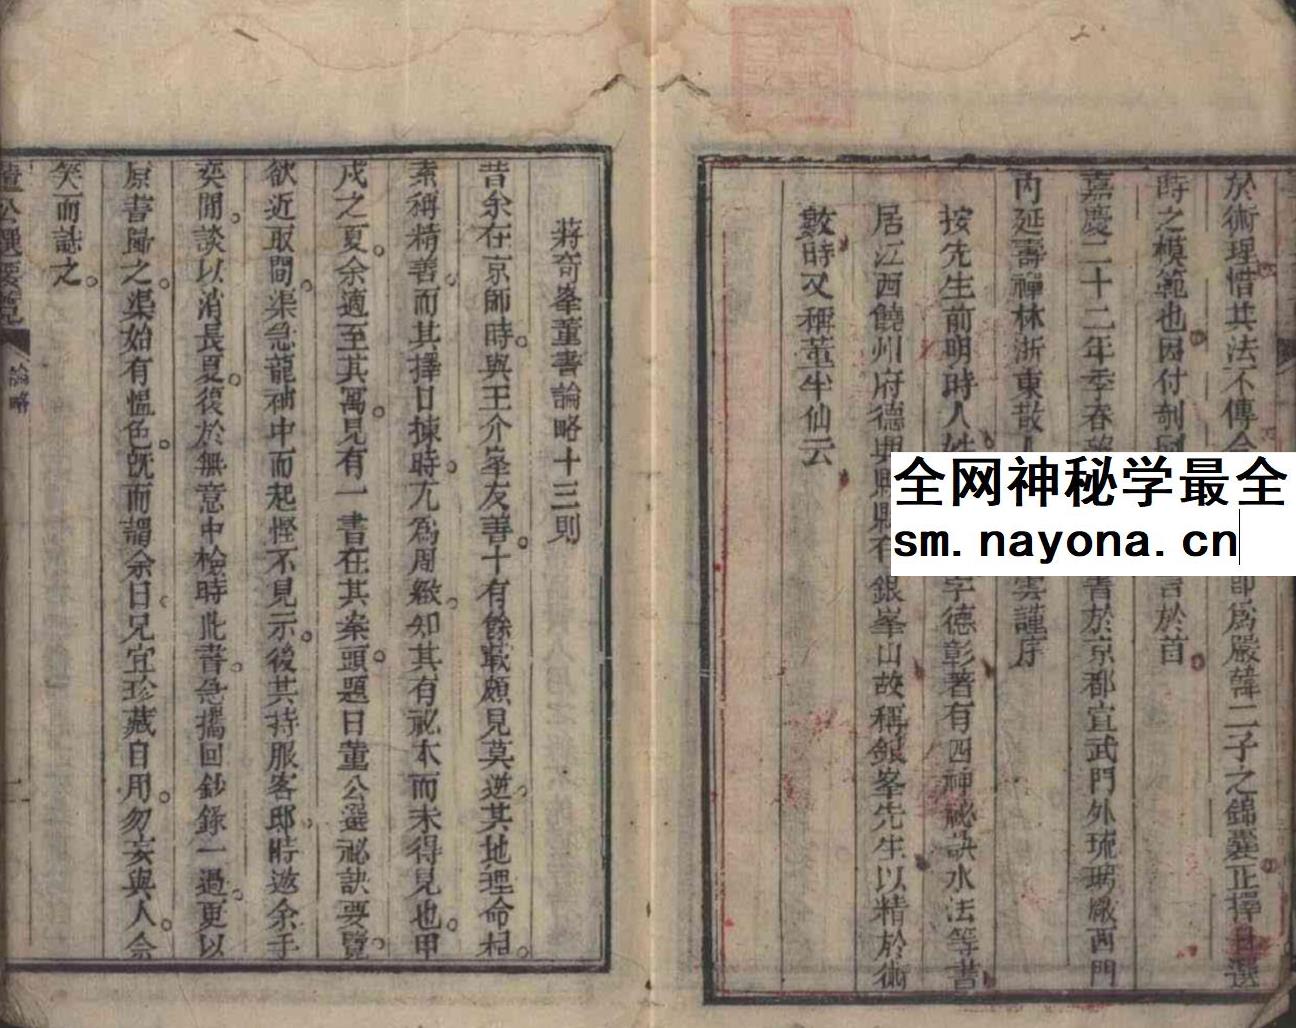 於術理惜其法不傳今
卽爲嚴韓二子之錦囊正擇日選
時之模範也因付剞
言於首
嘉慶二十二年季春
書於京都宣武門外琉璃厰西門
內延壽禪林浙東散
雲謹序
按先生前明時人姓
字德彰著有四神祕訣水法等書
居江西饒州府德興縣
在銀峯山故稱銀峯先生以精於術
數時又稱董半仙云
全网神秘学最全
sm.nayona.cn
蔣奇峯董書論略十三則
昔余在京師時與王介峯友善十有餘載頗見莫逆其地理命相
素稱精善而其擇日揀時尢爲周緻知其有祕本而未得見也甲
戌之夏余適至其寓見有一書在其案頭題曰董公選祕訣要覽
欲近取閱渠急籠袖中而起慳不見示後其持服客邸時邀余手
奕閒談以消長夏復於無意中檢時此書急攜回鈔錄一過更以
原書歸之渠始有慍色旣而謂余曰兄宜珍藏自用勿妄與人余
笑而誌之
董公選要覽
論略
一